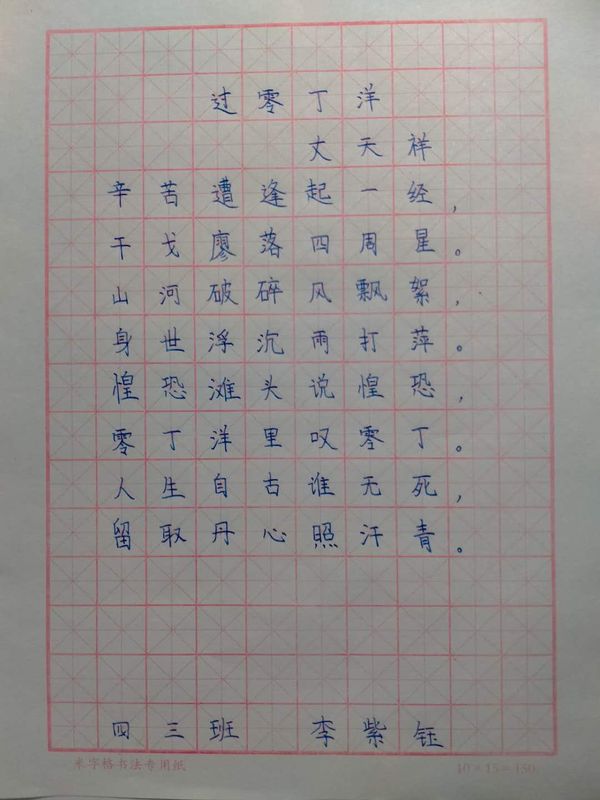 过零丁洋
文天祥
辛苦遭逢起一经，
干戈廖落四周星。
山河破碎风飘絮，
身世浮沉雨打萍。
惶恐滩头说惶恐，
零丁洋里叹零丁。
人生自古谁无死，
留取丹心照汗青。
四三班 李紫钰
米字格书法专用纸 10×15=150